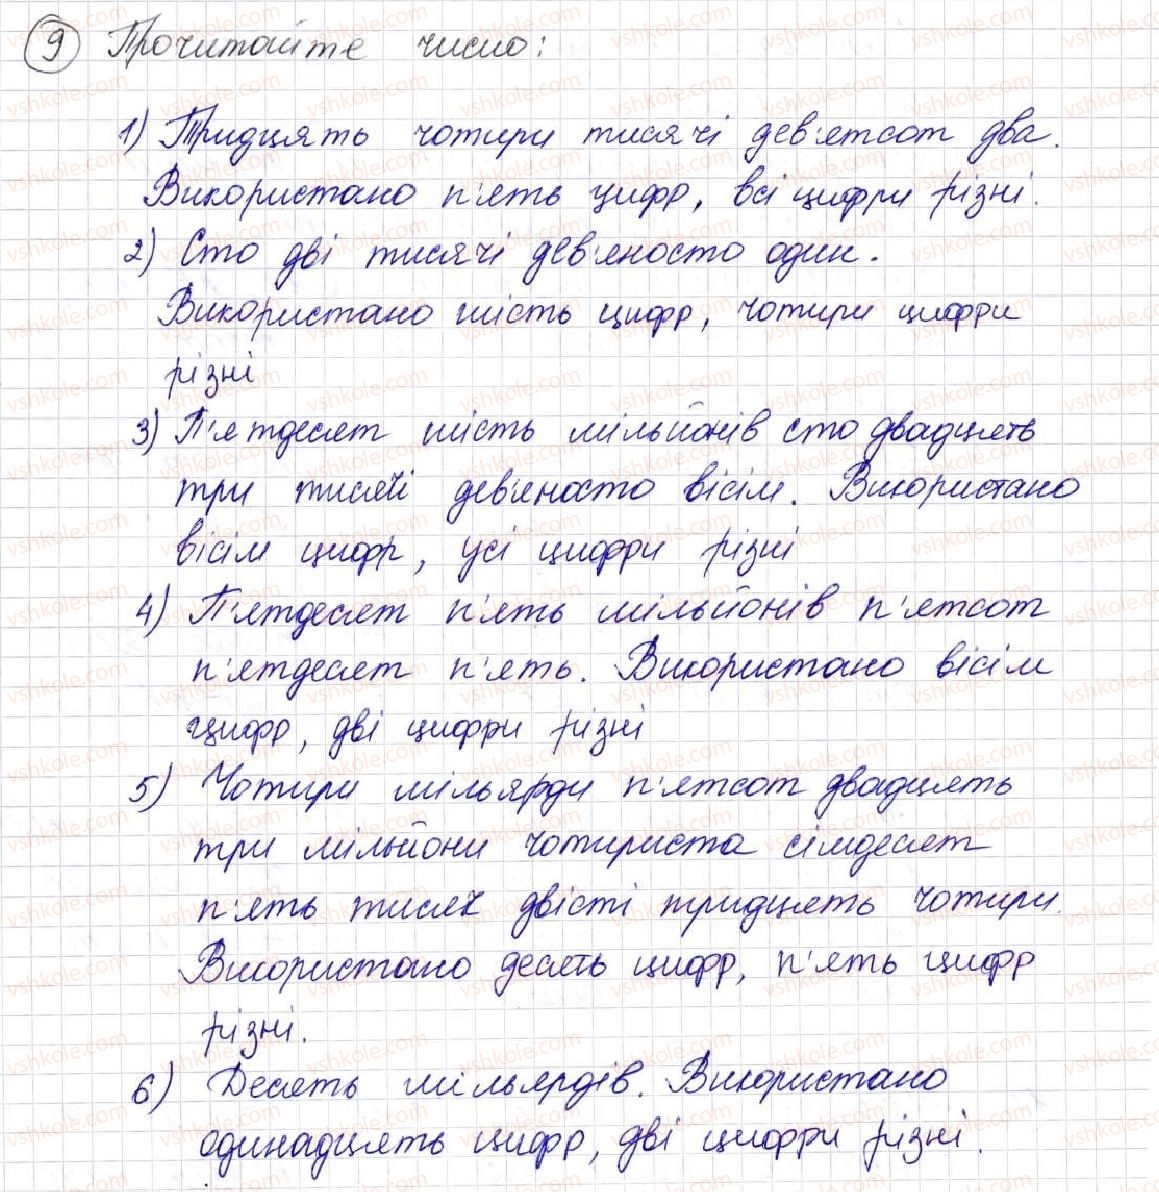 9 Прочитайте число:
1) Тридцять чотири тисячі дев'ятсот два.
Використано п'ять цифр, всі цифри різні.
2) Сто дві тисячі дев'яносто один.
Використано шість цифр, чотири цифри
різні
3) П'ятдесят шість мільйонів сто двадцять
три тисячі дев'яносто вісім. Використано
вісім цифр, усі цифри різні
4) П'ятдесят п'ять мільйонів п'ятсот
п'ятдесят п'ять. Використано вісім
цифр, дві цифри різні
5) Чотири мільярди п'ятсот двадцять
три мільйони чотириста сімдесят
п'ять тисяч двісті тридцять чотири.
Використано десять цифр, п'ять цифр
різні.
6) Десять мільярдів. Використано
одинадцять цифр, дві цифри різні.